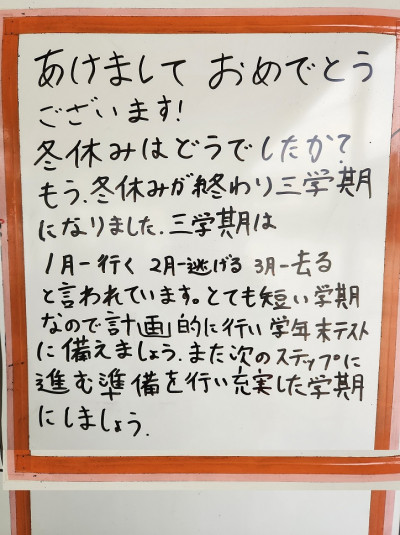 あけまして おめでとう
ございます!
冬休みはどうでしたか?
もう、冬休みが終わり三学期
になりました。三学期は
1月ー行く 2月ー逃げる 3月ー去る
と言われています。とても短い学期
なので計画的に行い学年末テスト
に備えましょう。また次のステップに
進む準備を行い充実した学期
にしましょう。